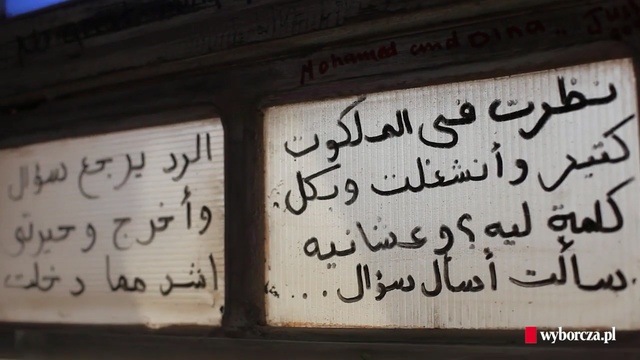 Mohamed and Dina .. Just
نظرت فى الملكوت
كتير وأنشغلت وبكل
كلمة ليه؟ وعشانيه
سألت أسأل سؤال...
الرد يرجع سؤال
وأخرج وحيرتو
اشد مما دخلت
wyborcza.pl